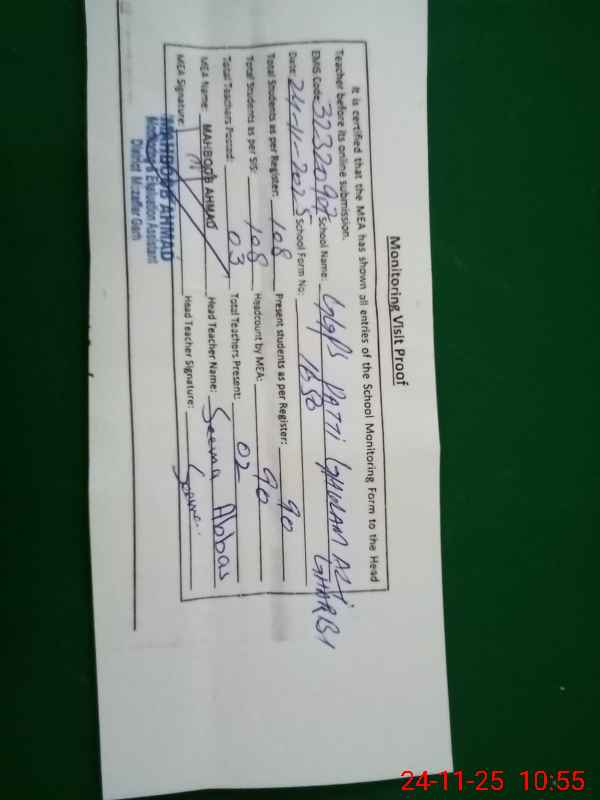 Monitoring Visit Proof
It is certified that the MEA has shown all entries of the School Monitoring Form to the Head
Teacher before its online submission.
EMIS Code: School Name: PATTI GHULAM ALI
GHARBI
Date: 24-11-2025 School Form No: 1650
Total Students as per Register: 108 Present students as per Register: 90
Total Students as per SIS: 108 Headcount by MEA: 90
Total Teachers Posted: 03 Total Teachers Present: 02
MEA Name: MAHBOOB AHMAD Head Teacher Name: Seema Abbas
MEA Signature: Head Teacher Signature: Seema
MAHBOOB AHMAD
Monitoring & Evaluation Assistant
District Muzaffar Garh
24-11-25 10:55